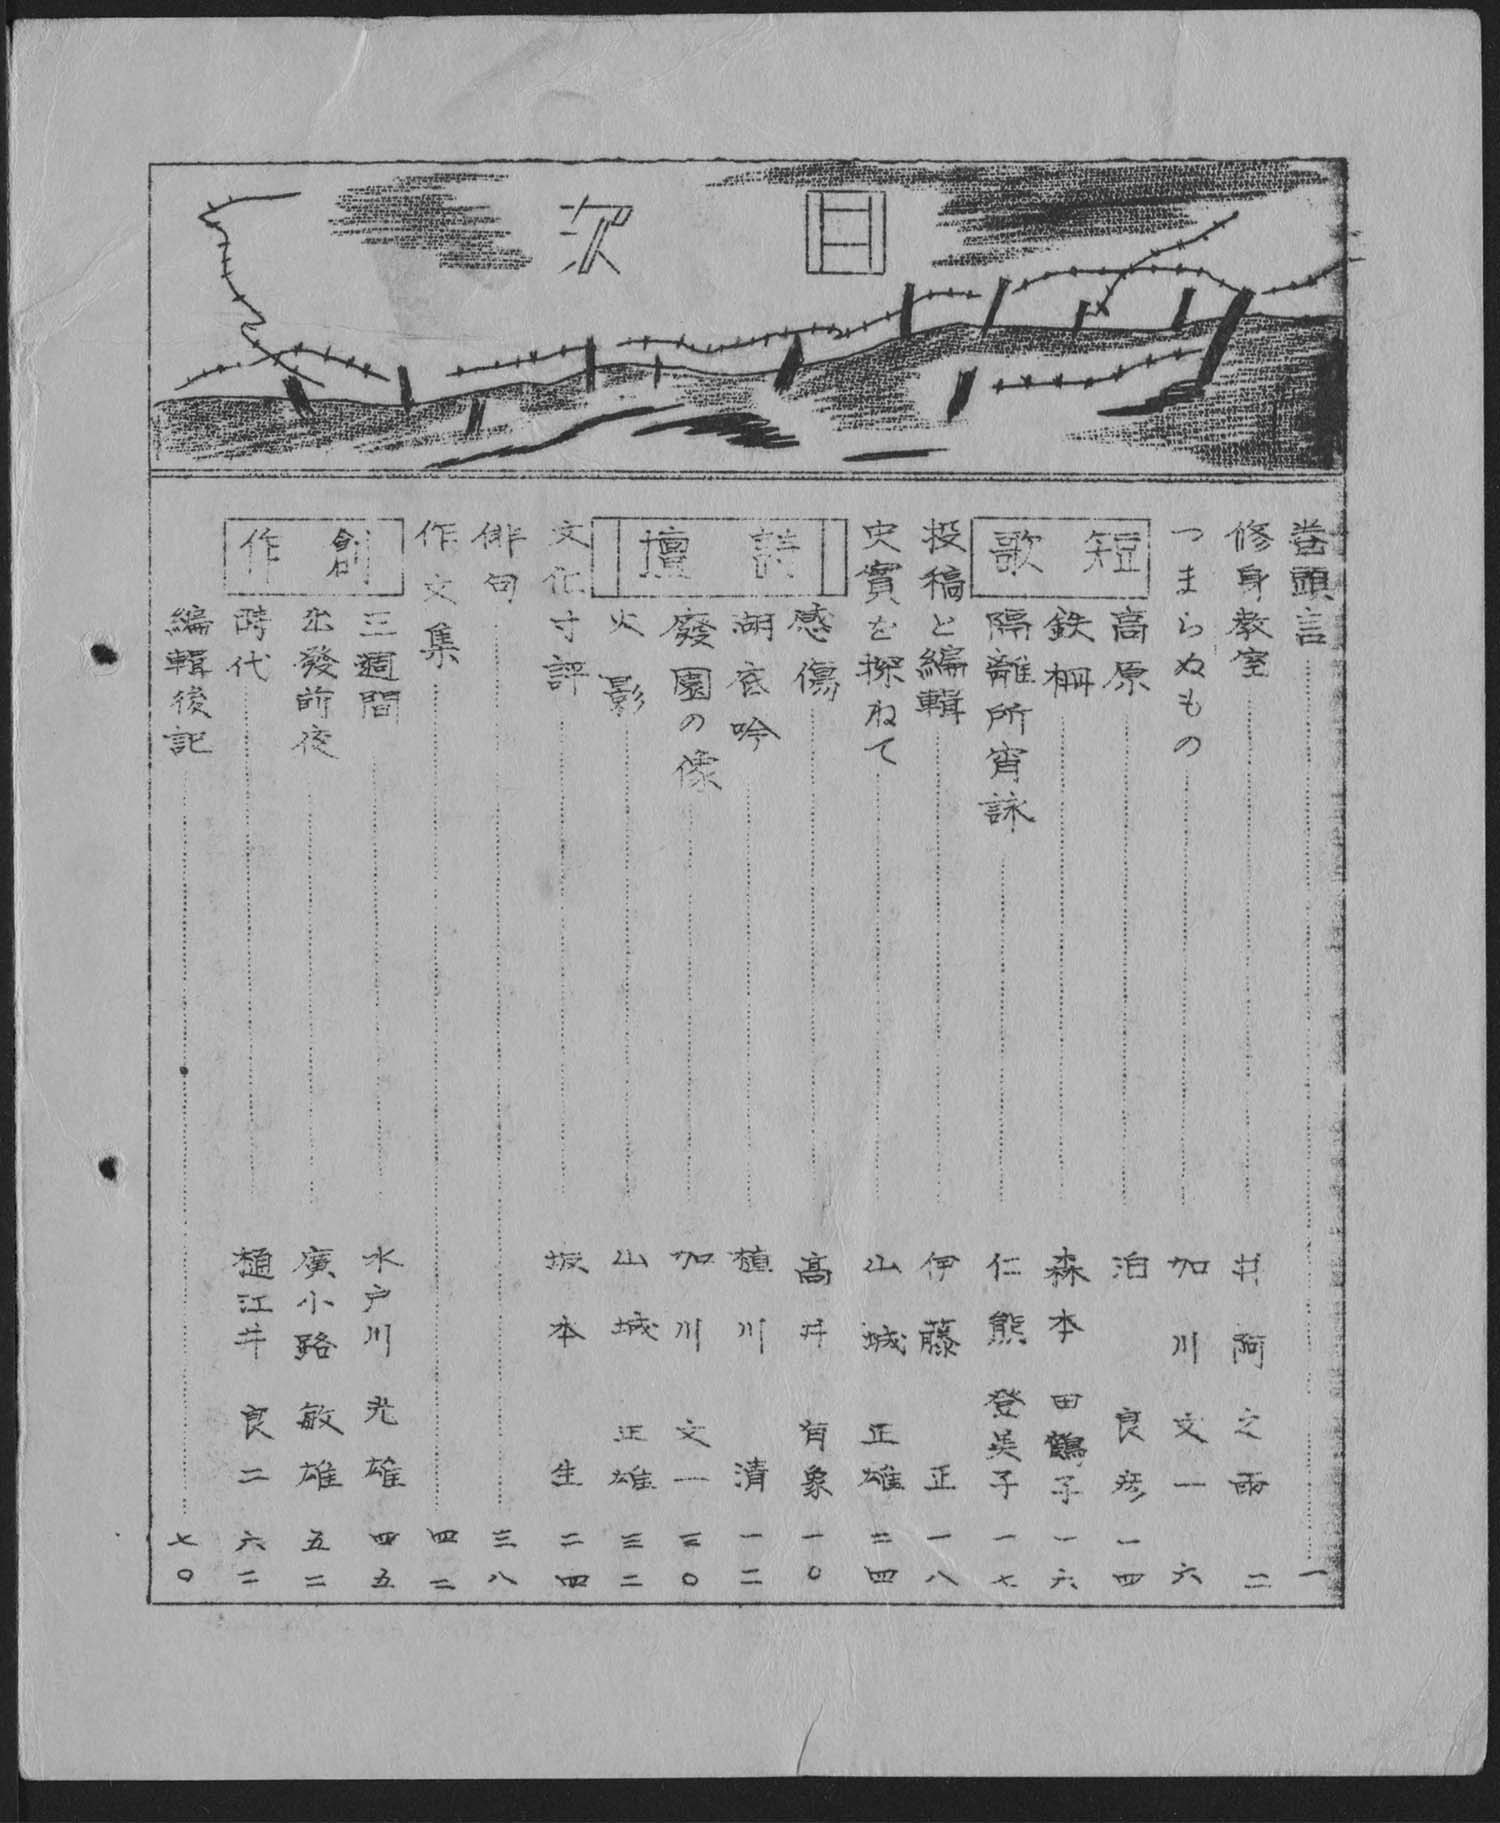 目次
巻頭言 一
修身教室 井阿之雨 二
つまらぬもの 加川文一 六
短歌
高原 泊良彦 一四
鉄柵 森本田鶴子 一六
隔離所宵詠 仁熊登美子 一七
投稿と編輯 伊藤正 一八
史實を探ねて 山城正雄 二四
詩壇
感傷 高井有象 一〇
湖底吟 植川清 一二
廢園の像 加川文一 三〇
火影 山城正雄 三二
文化寸評 坂本生 二四
俳句 三八
作文集 四二
創作
三週間 水戸川光雄 四五
出發前夜 廣小路敏雄 五二
時代 樋江井良二 六二
編輯後記 七〇